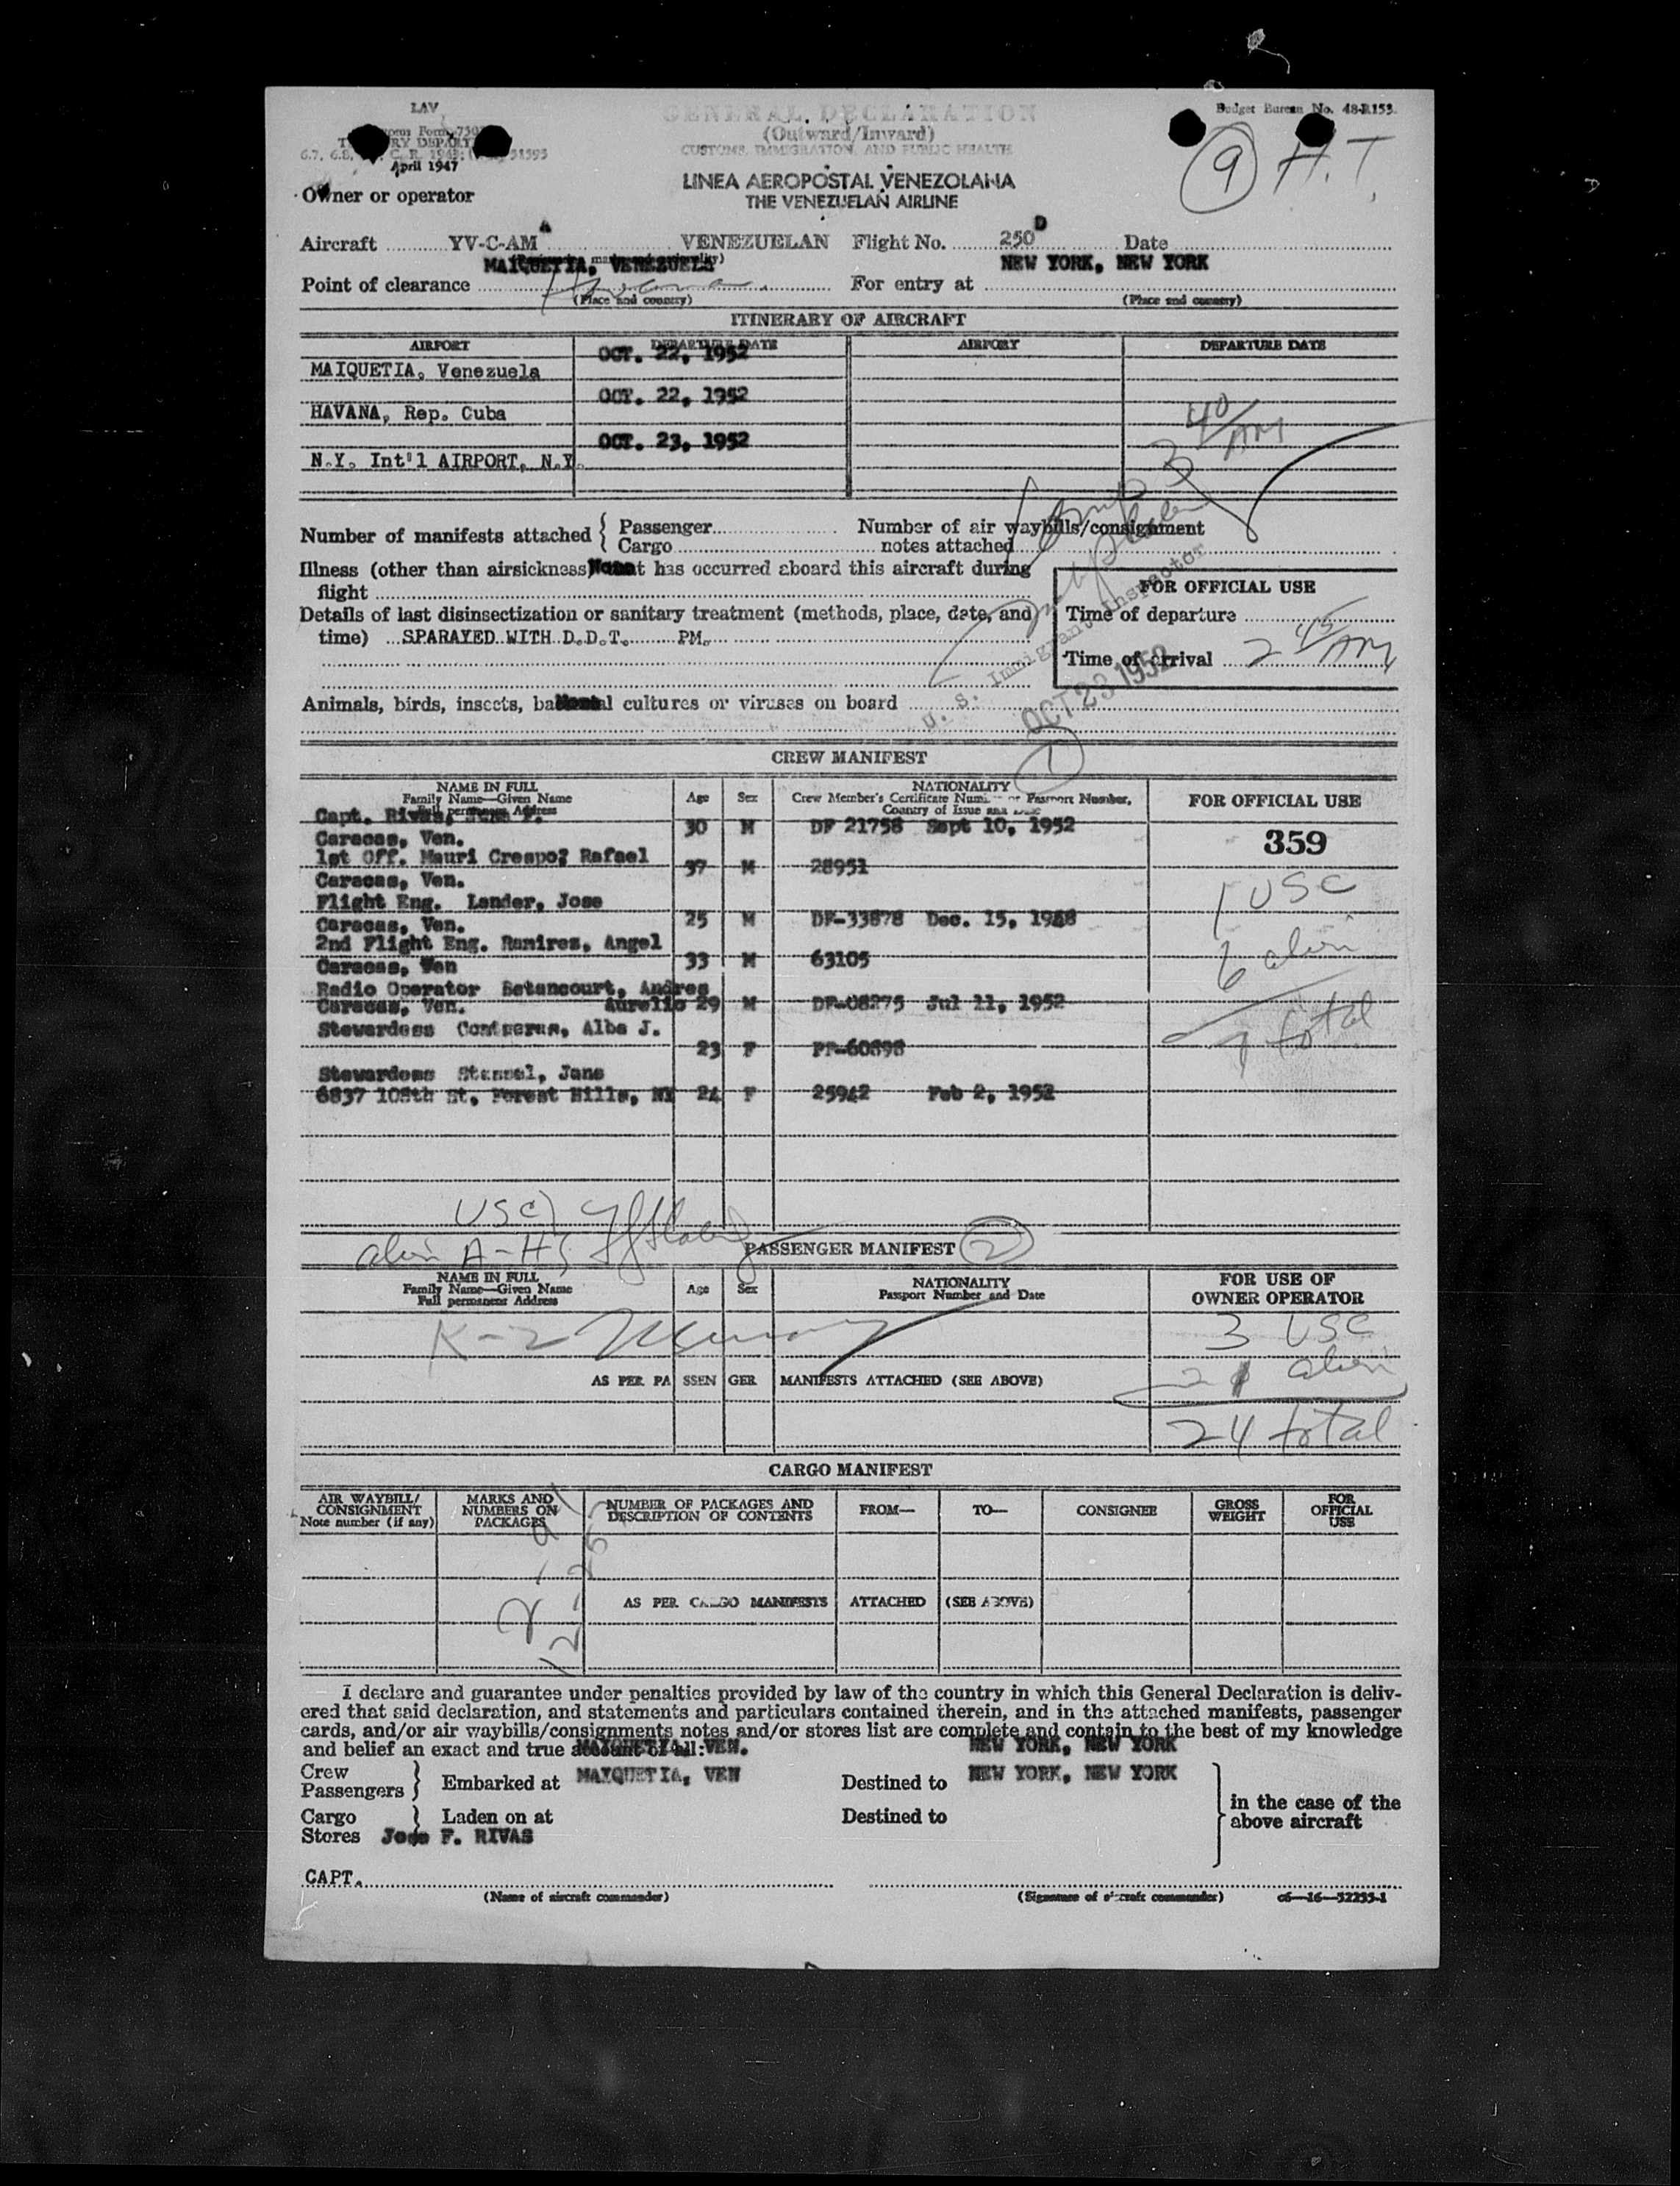 LAV
GENERAL DECLARATION
Budget Bureau No. 48-R153.
(Outward/Inward)
CUSTOMS, IMMIGRATION, AND PUBLIC HEALTH
April 1947
9 H.T.
LINEA AEROPOSTAL VENEZOLANA
THE VENEZUELAN AIRLINE
Owner or operator
Aircraft YV-C-AMA VENEZUELAN Flight No. 250D Date
MAIQUETIA, VENEZUELA NEW YORK, NEW YORK
Point of clearance Havana. For entry at
(Place and country) (Place and country)
ITINERARY OF AIRCRAFT
AIRPORT DEPARTURE DATE AIRPORT DEPARTURE DATE
MAIQUETIA, Venezuela OCT. 22, 1952
HAVANA, Rep. Cuba OCT. 22, 1952
N.Y. Int'l AIRPORT, N.Y. OCT. 23, 1952
3 40/AM
Number of manifests attached { Passenger Number of air waybills/consignment
Cargo notes attached
Illness (other than airsickness) that has occurred aboard this aircraft during
None
flight
FOR OFFICIAL USE
Details of last disinsectization or sanitary treatment (methods, place, date, and
time) SPARAYED WITH D.D.T. PM.
Time of departure
Time of arrival 2 45/AM
U. S. Immigrant Inspector
OCT 23 1952
Animals, birds, insects, bacterial cultures or viruses on board
None
1
CREW MANIFEST
NAME IN FULL
Family Name—Given Name
Full permanent Address
Age Sex
NATIONALITY
Crew Member's Certificate Number or Passport Number,
Country of Issue and Date
FOR OFFICIAL USE
Capt. Rivas, Jose F.
Caracas, Ven. 30 M DF 21758 Sept 10, 1952
359
1st Off. Mauri Crespo, Rafael
Caracas, Ven. 37 M 28951
1 USC
Flight Eng. Lander, Jose
Caracas, Ven. 25 M DF-33878 Dec. 15, 1948
2nd Flight Eng. Ramirez, Angel
Caracas, Ven 33 M 63105
6 alien
Radio Operator Betancourt, Andres
Caracas, Ven. Aurelio 29 M DF-08275 Jul 11, 1952
7 total
Stewardess Contreras, Alba J.
23 F PP-60898
Stewardess Stensel, Jane
6837 108th St, Forest Hills, NY 24 F 25942 Feb 2, 1952
USC)
alien A-H)
PASSENGER MANIFEST 2
NAME IN FULL
Family Name—Given Name
Full permanent Address
Age Sex
NATIONALITY
Passport Number and Date
FOR USE OF
OWNER OPERATOR
K-Z
3 USC
21 alien
AS PER PASSENGER MANIFESTS ATTACHED (SEE ABOVE)
24 total
CARGO MANIFEST
AIR WAYBILL/
CONSIGNMENT
Note number (if any)
MARKS AND
NUMBERS ON
PACKAGES
NUMBER OF PACKAGES AND
DESCRIPTION OF CONTENTS
FROM—
TO—
CONSIGNEE
GROSS
WEIGHT
FOR
OFFICIAL
USE
AS PER CARGO MANIFESTS ATTACHED (SEE ABOVE)
I declare and guarantee under penalties provided by law of the country in which this General Declaration is deliv-
ered that said declaration, and statements and particulars contained therein, and in the attached manifests, passenger
cards, and/or air waybills/consignments notes and/or stores list are complete and contain to the best of my knowledge
and belief an exact and true account of all:
MAIQUETIA, VEN. NEW YORK, NEW YORK
Crew
Passengers } Embarked at MAIQUETIA, VEN Destined to NEW YORK, NEW YORK
Cargo
Stores } Laden on at Destined to
in the case of the
above aircraft
Jose F. RIVAS
CAPT.
(Name of aircraft commander) (Signature of aircraft commander) c6—16—52255-1